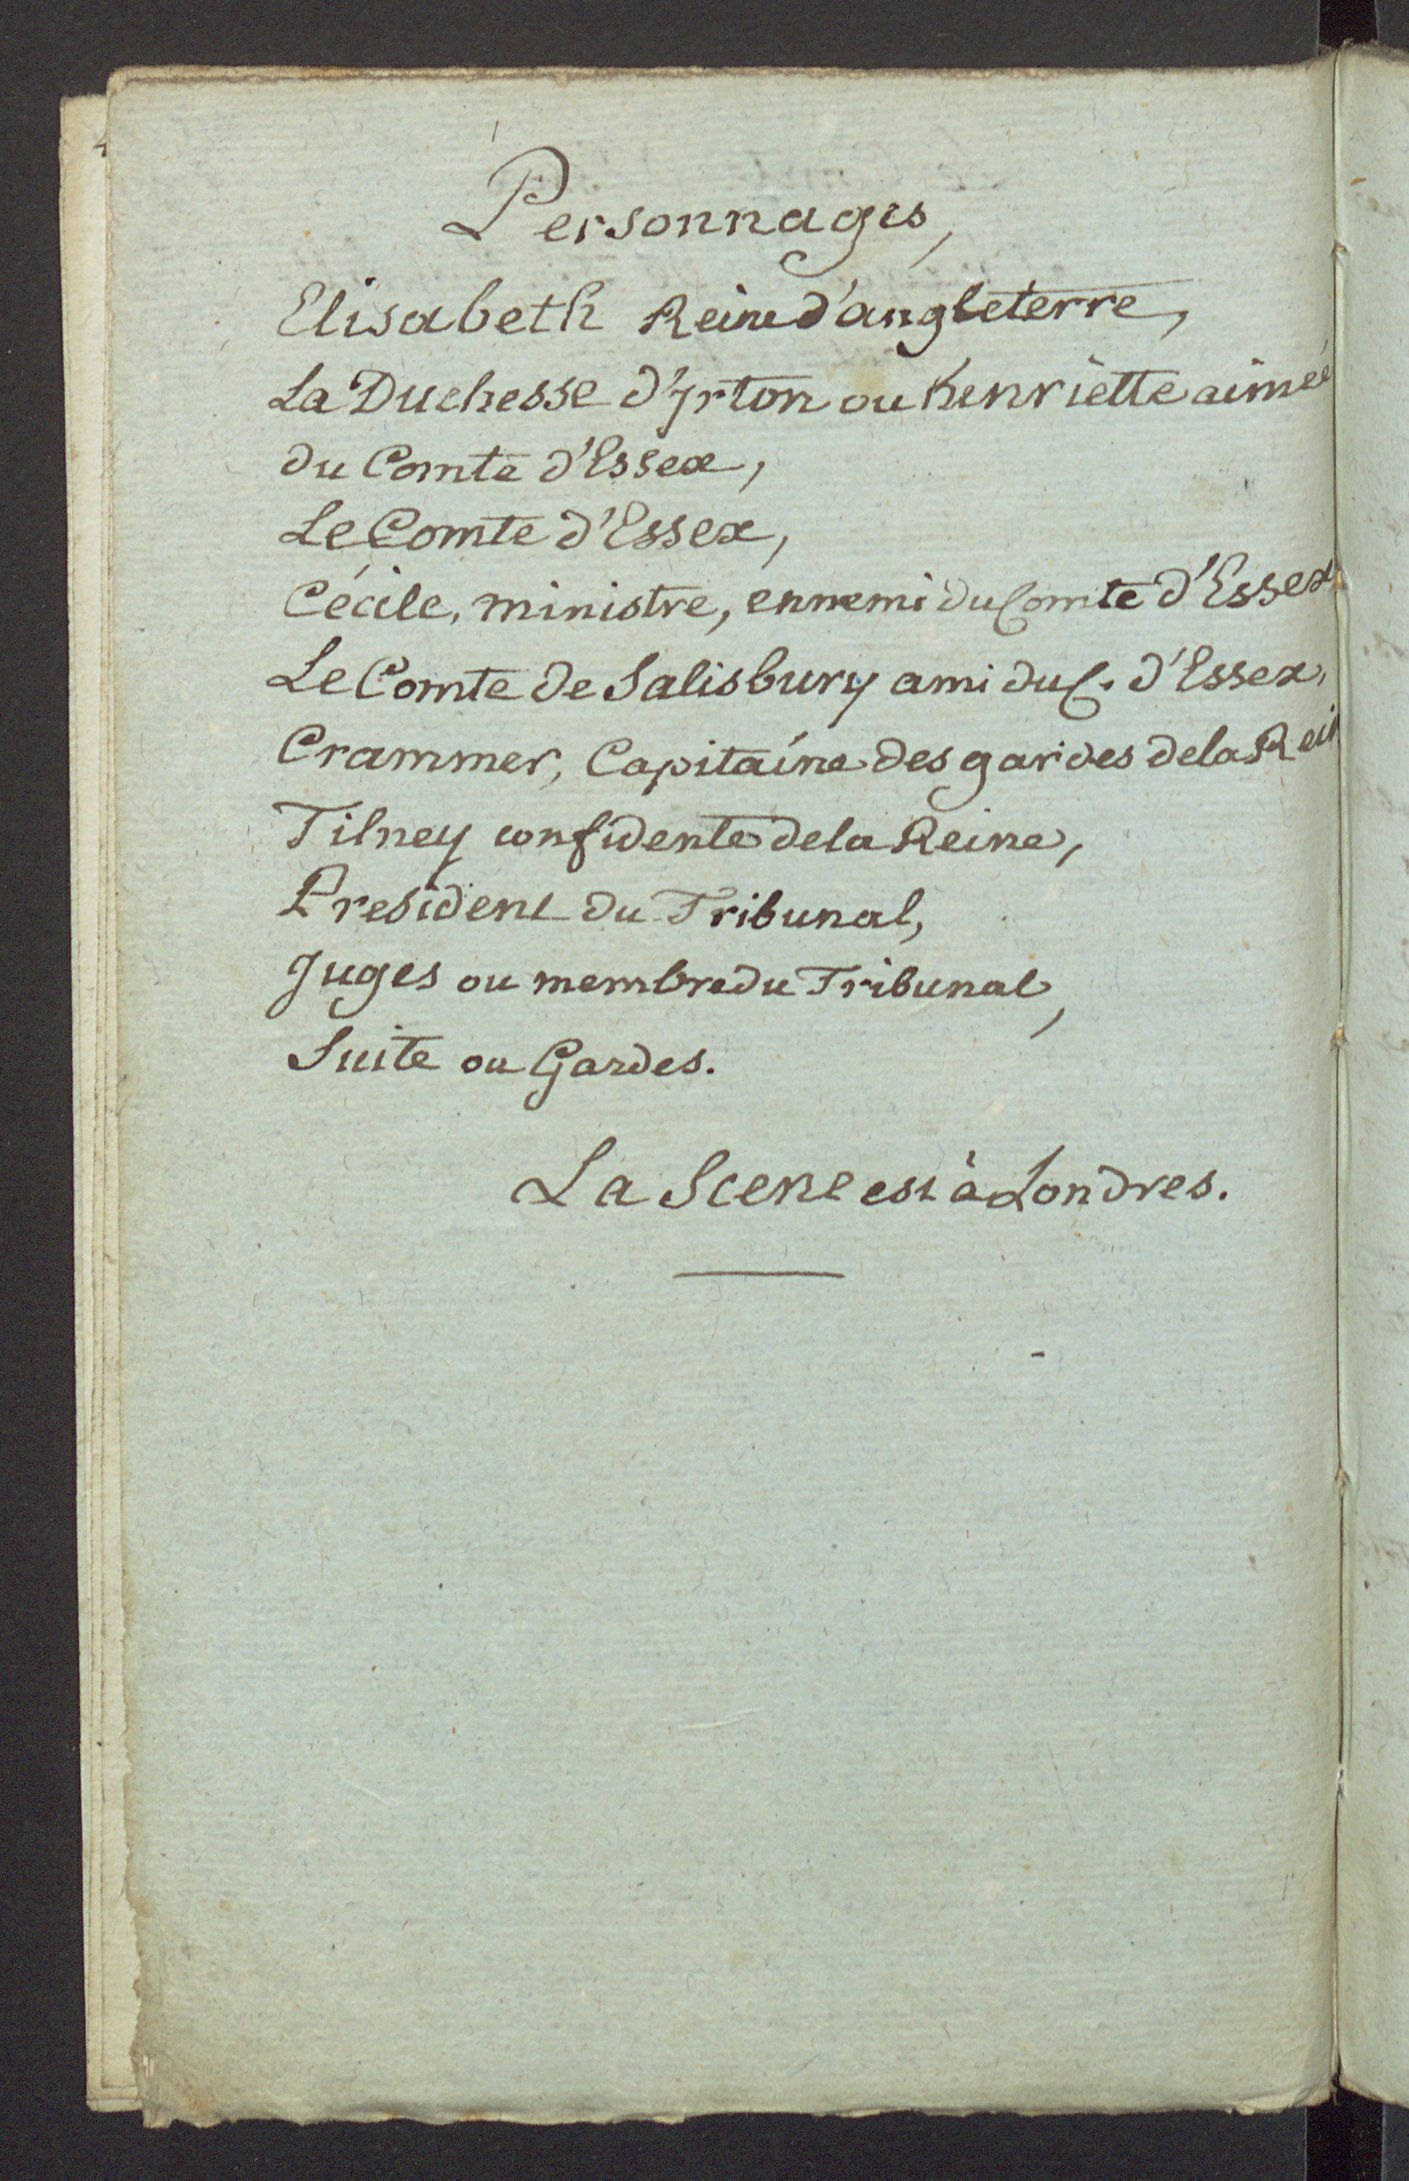 Personnages,
Elisabeth Reine d'angleterre,
La Duchesse d'Irton ou henriette aimée
du Comte d'Essex,
Le Comte d'Essex,
Cécile, ministre, ennemi du Comte d'Essex
Le Comte de Salisbury ami du C. d'Essex,
Crammer, Capitaine des gardes de la Rein
Tilney confidente de la Reine,
President du Tribunal,
Juges ou membre du Tribunal,
Suite ou Gardes.
La Scene est à Londres.